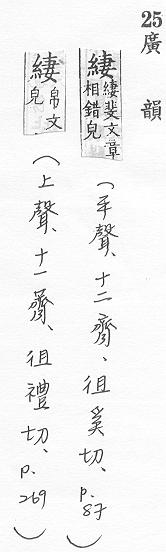 25廣韻
緀 緀斐文章相錯皃
（平聲、十二齊、徂奚切、p.87）
緀 帛文皃
（上聲、十一薺、徂禮切、p.269）